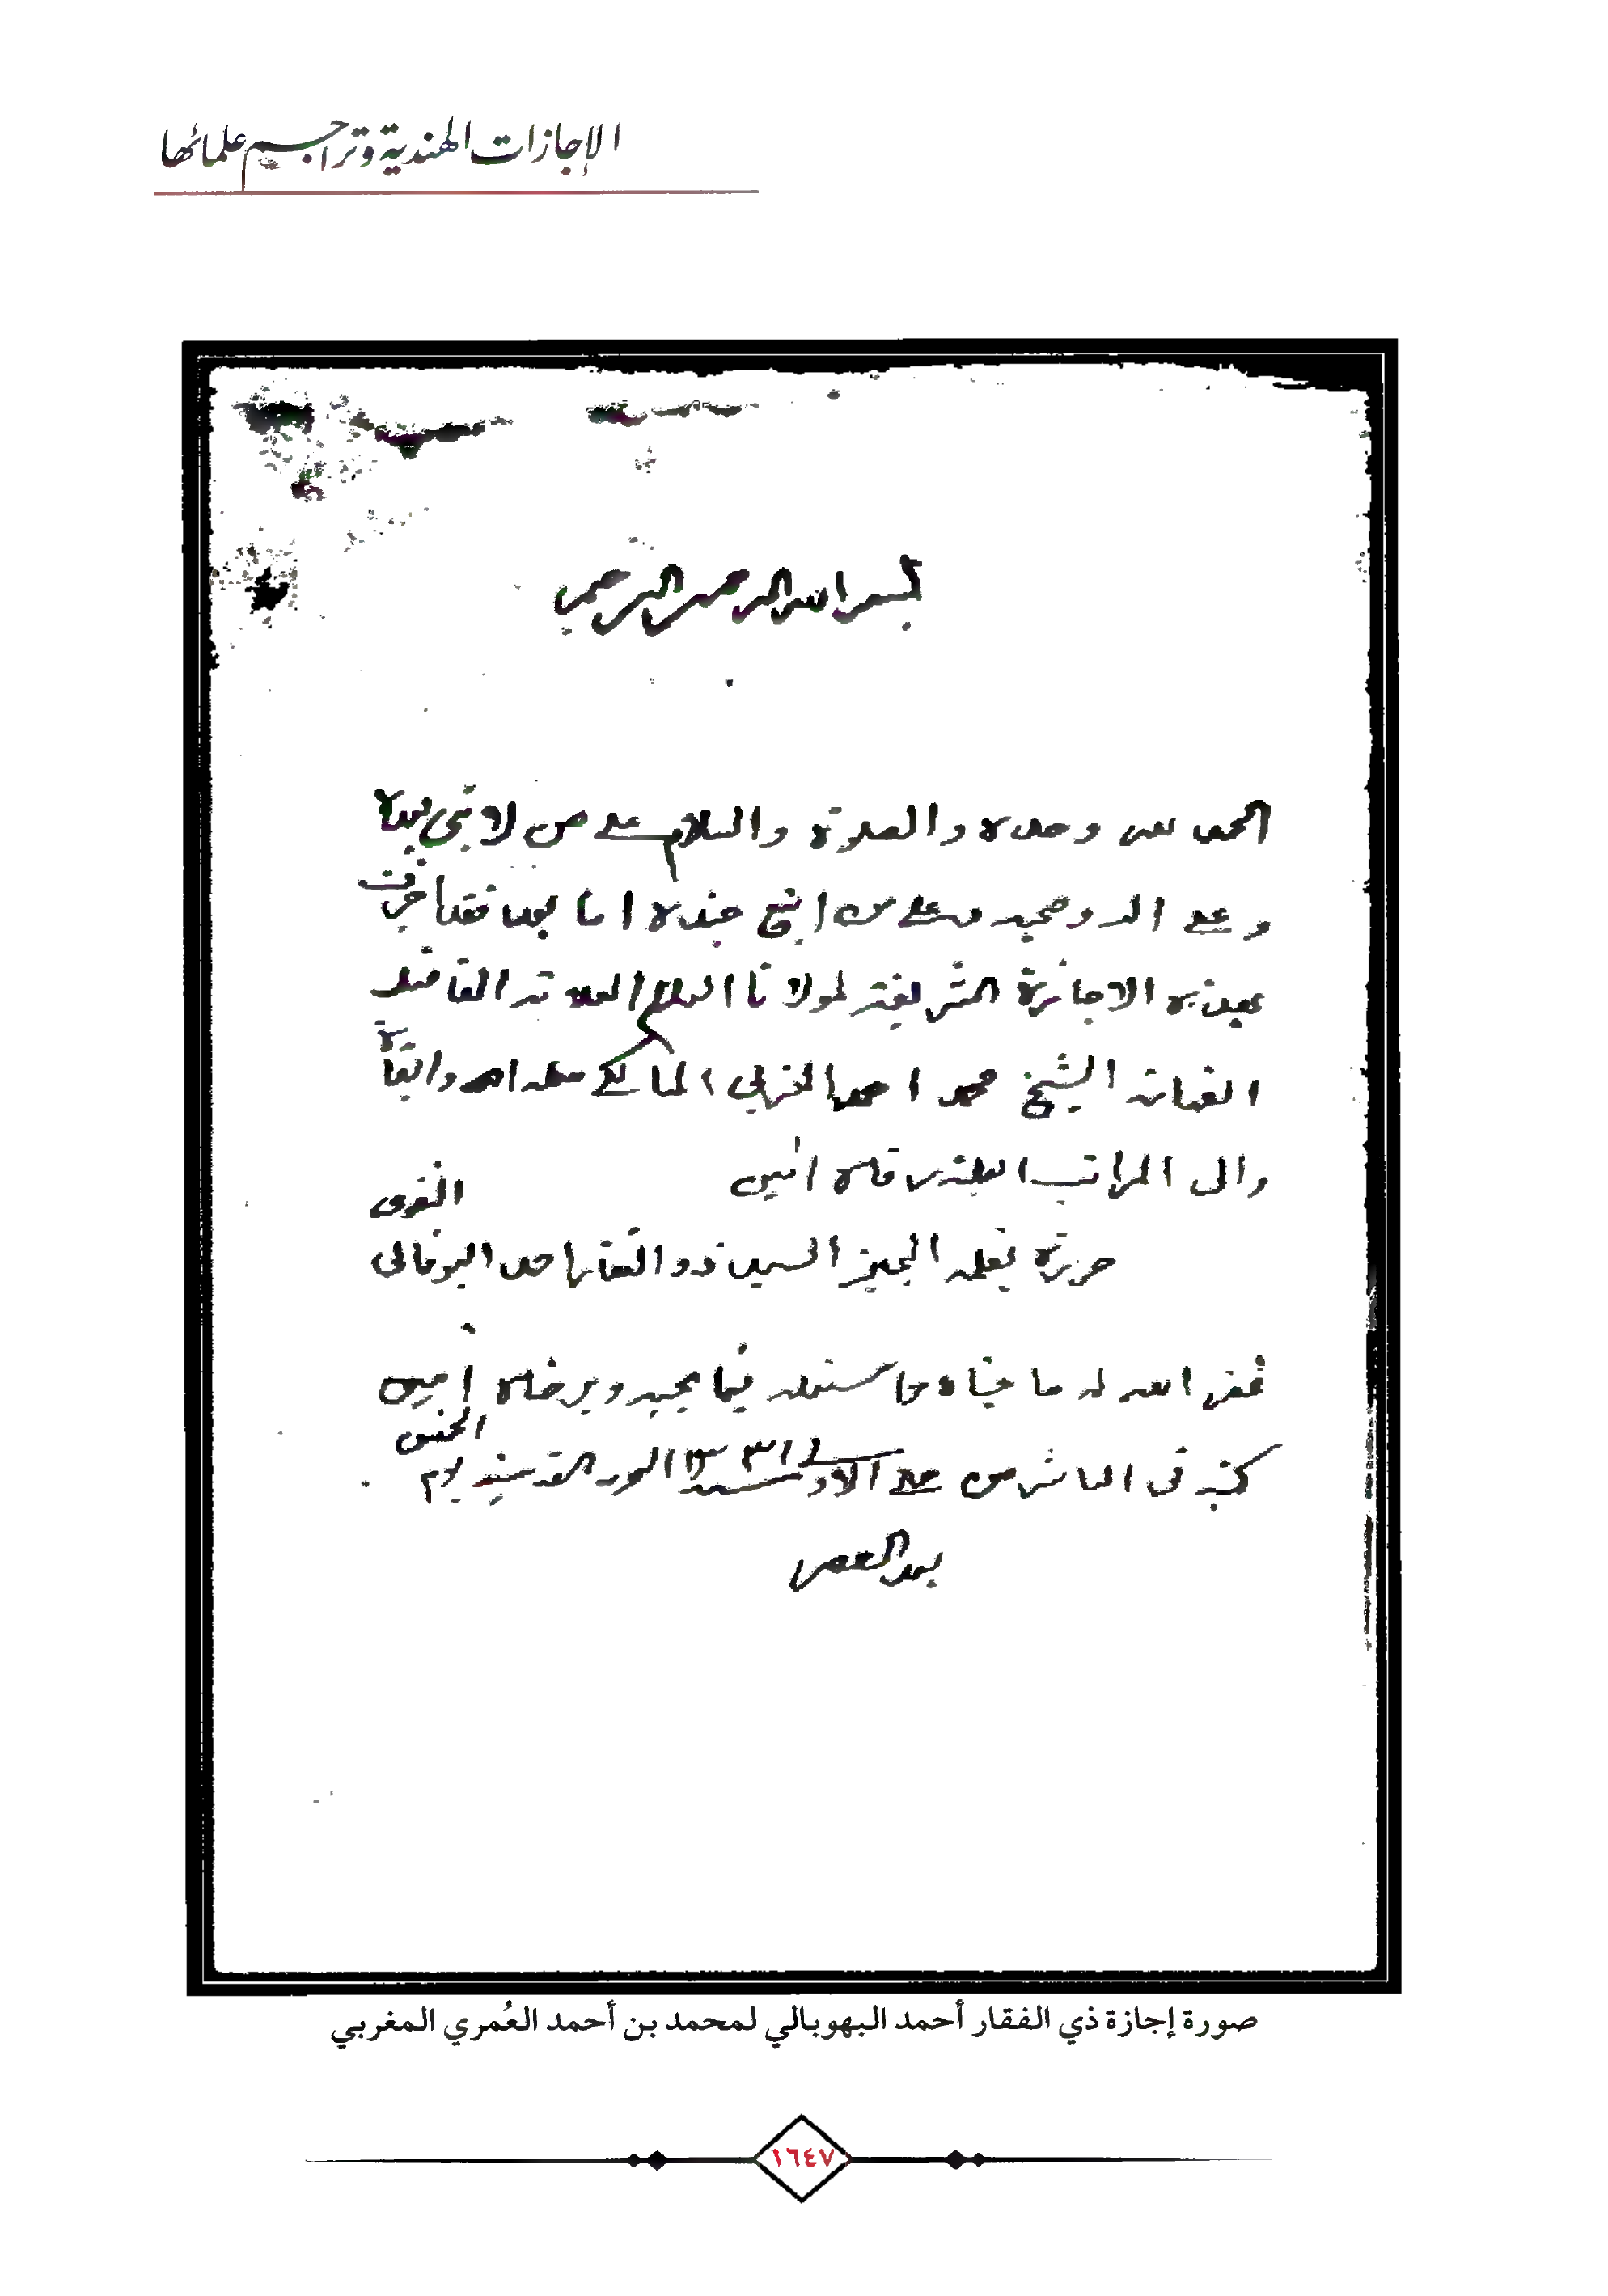 الإجازات الهندية وتراجم علمائها
بسم الله الرحمن الرحيم
الحمد لله وحده والصلوة والسلام على من لا نبي بعده
وعلى اله وصحبه وعلى من اتبع جنده اما بعد فقد اجزت
بهذه الاجازة الشريفة لمولانا العلامة الفاضل
الفهامة الشيخ محمد احمد المغربي المالكي سلمه الله وابقاه
والى المراتب العلية رقاه امين
حررته بقلمه المجيز السيد ذو الفقار احمد النقوى البوفالي
غفر الله له ما جناه واستعمله فيما يحبه ويرضاه امين
كتبته في العاشر من الاولى سنة ١٣٣١ الهجرة القدسية يوم الخميس
بعد العصر
صورة إجازة ذي الفقار أحمد البهوبالي لمحمد بن أحمد العُمري المغربي
١٦٤٧